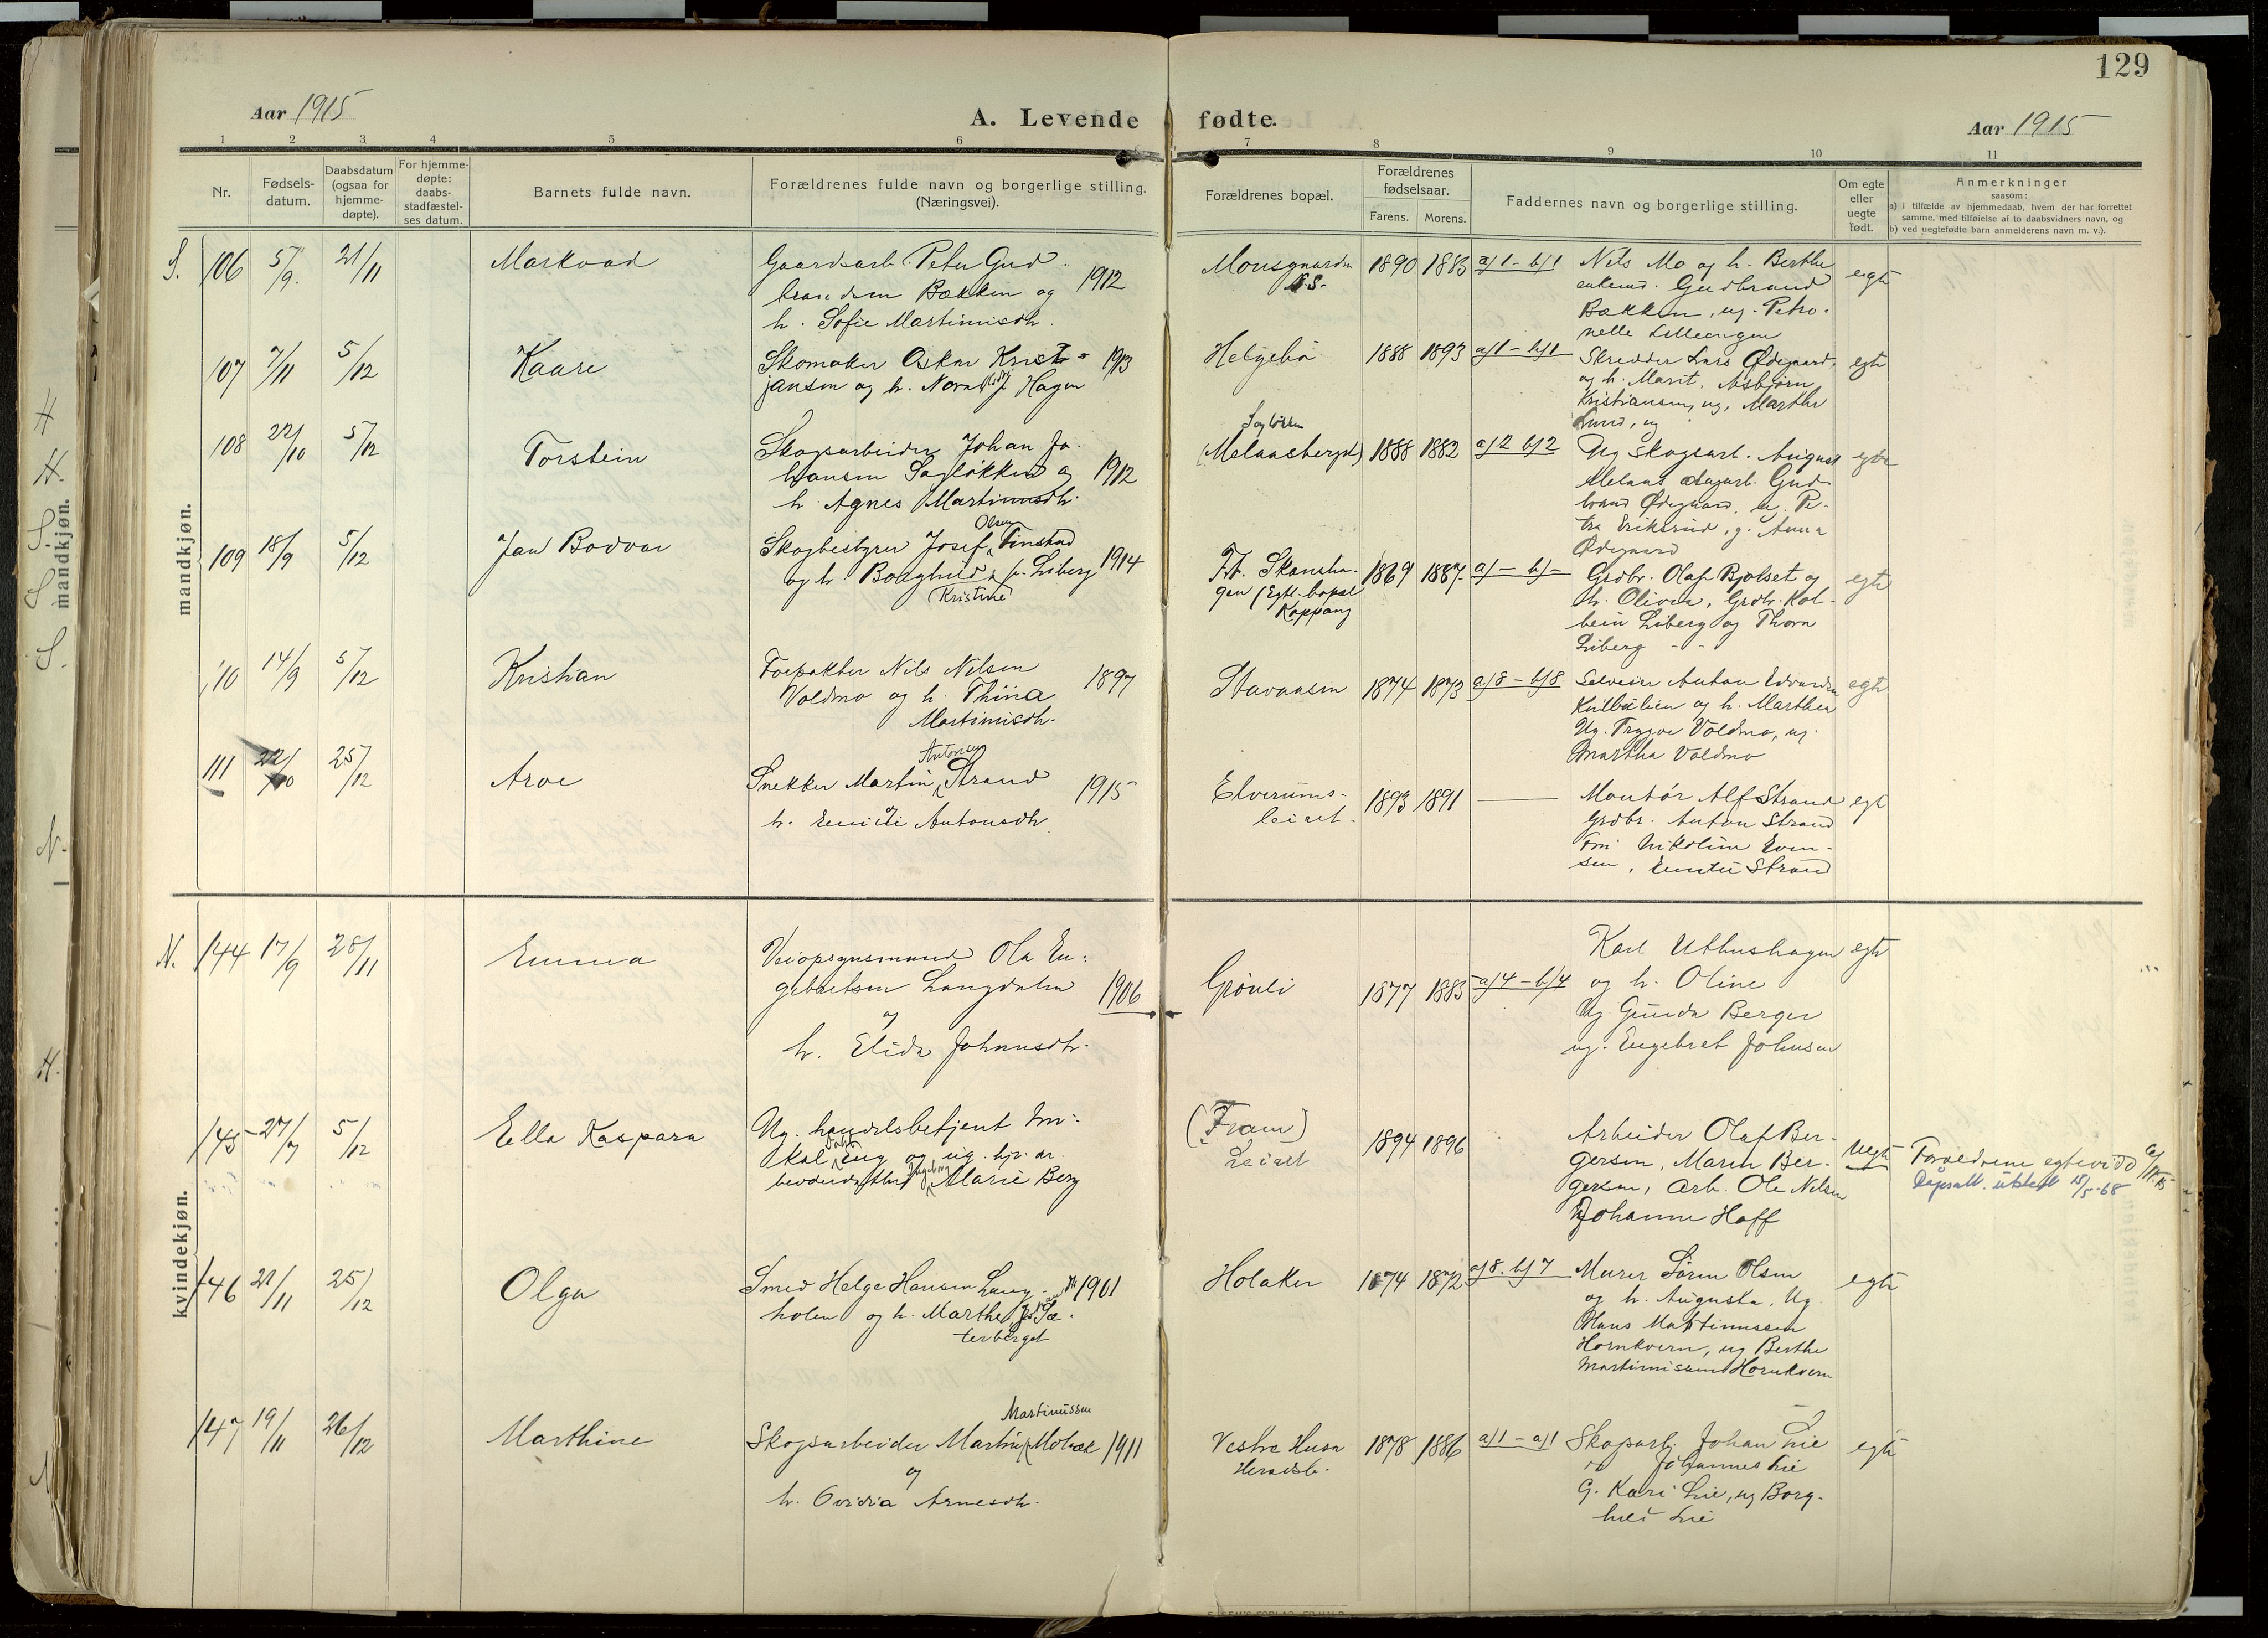 129
Aar 1915
A. Levende fødte.
Aar 1915
1 2 3 4 5 6 7 8 9 10 11
Nr.
Fødsels-
datum.
Daabsdatum
(ogsaa for
hjemme-
døpte).
For hjemme-
døpte:
daabs-
stadfæstel-
ses datum.
Barnets fulde navn.
Forældrenes fulde navn og borgerlige stilling.
(Næringsvei).
Forældrenes bopæl.
Forældrenes
fødselsaar.
Farens. Morens.
Faddernes navn og borgerlige stilling.
Om egte
eller
uegte
født.
Anmerkninger
saasom:
a) i tilfælde av hjemmedaab, hvem der har forrettet
samme, med tilføielse af to daabsvidners navn, og
b) ved uegtefødte barn anmelderens navn m. v.).
mandkjøn.
S. 106 5/9. 21/11
Markvad
Gaardsarb. Peter Gud-
brandsen Bækken og 1912
h. Sofie Martinusdtr.
Monsgaarden
S.S.
1890 1883 a/1 - b/1
Nils Mo og h. Berthe
Gudbrand
Bækken, ug. Petro-
nelle Lilleengen
egte
107 7/11 5/12
Kaare
Skomaker Oskar Krist-
jansen og h. Nora Hagen 1913
Helgebö
1888 1893 a/1 - b/1
Skredder Lars Ødegaard,
og h. Marit, Asbjørn
Kristiansen, ug, Marthe
Lund, ug
egte
108 22/10 5/12
Torstein
Skogsarbeider Johan Jo-
hansen Sagløkken og 1912
h. Agnes Martinusdtr.
Sagløkken
(Melaasberget)
1888 1882 a/2 b/2
Ug Skogsarb. August
Melaas dagarb. Gud-
brand Ødegaard, u. Pe-
tra Eriksrud, g. Anna
Ødegaard
egte
109 18/9 5/12
Jan Bodvar
Skogbestyrer Josef Olsen Finstad
og h. Borghild (Kristine) f. Liberg 1914
F.t. Skansha-
gen (Egtl. bopæl
Koppang
1869 1887 a/- b/-
Grdbr. Olaf Bjølset og
h. Olivia, Grdbr. Kol-
bein Liberg og Thora
Liberg - -
egte
110 14/9 5/12
Kristian
Forpakter Nils Nilsen
Voldmo og h. Thina 1897
Martinusdtr.
Stavaasen
1874 1873 a/8 - b/8
Selveier Anton Edvardsen
og h. Marthea
Ug. Trygve Voldmo, ug.
Martha Voldmo
egte
111 22/10 25/12
Arve
Snekker Martin Antonsen Strand
og 1915
h. Emilie Antonsdtr.
Elverums-
leiret.
1893 1891
Montör Alf Strand
Grdbr. Anton Strand
Fru Nikoline Even-
sen, Emilie Strand
egte
kvindekjøn.
N. 144 17/9 28/11
Emma
Veiopsynsmand Ola En-
gebretsen Langdalen 1906
og
h. Elida Johansdtr.
Grönli
1877 1885 a/4 - b/4
Karl Uthushagen
og h. Oline
Ug. Gunda Berger
ug. Engebret Johnsen
egte
145 27/9 5/12
Ella Kaspara
Ug. handelsbetjent
og ug.
Ingeborg Marie Berg
(Fram)
Leiret
1894 1896
Arbeider Olaf Ber-
gersen, Maren Ber-
gersen, Arb. Ole Nilsen
Johanne Hoff
Uegte
Forældrene egteviet
Dåpsatt. utstedt 15/5-68
146 21/11 25/12
Olga
Smed Helge Hansen Lang-
holen og h. Marthe Sæ-
terberget 1901
Holaker
1874 1872 a/8. b/7
Murer Sören Olsen
og h. Augusta, Ug
Hans Martinussen
Hornkvern, ug Berthe
Martinussen Hornkvern
egte
147 19/11 26/12
Marthine
Skogsarbeider Martin Martinussen Molbæk 1911
og
h. Ovidia Arnesdtr.
Vestre Husa
Heradsb.
1878 1886 a/1 - a/1
Skogarb. Johan Lie
Johannes Lie
G. Kari Lie, ug Borg-
hild Lie
egte